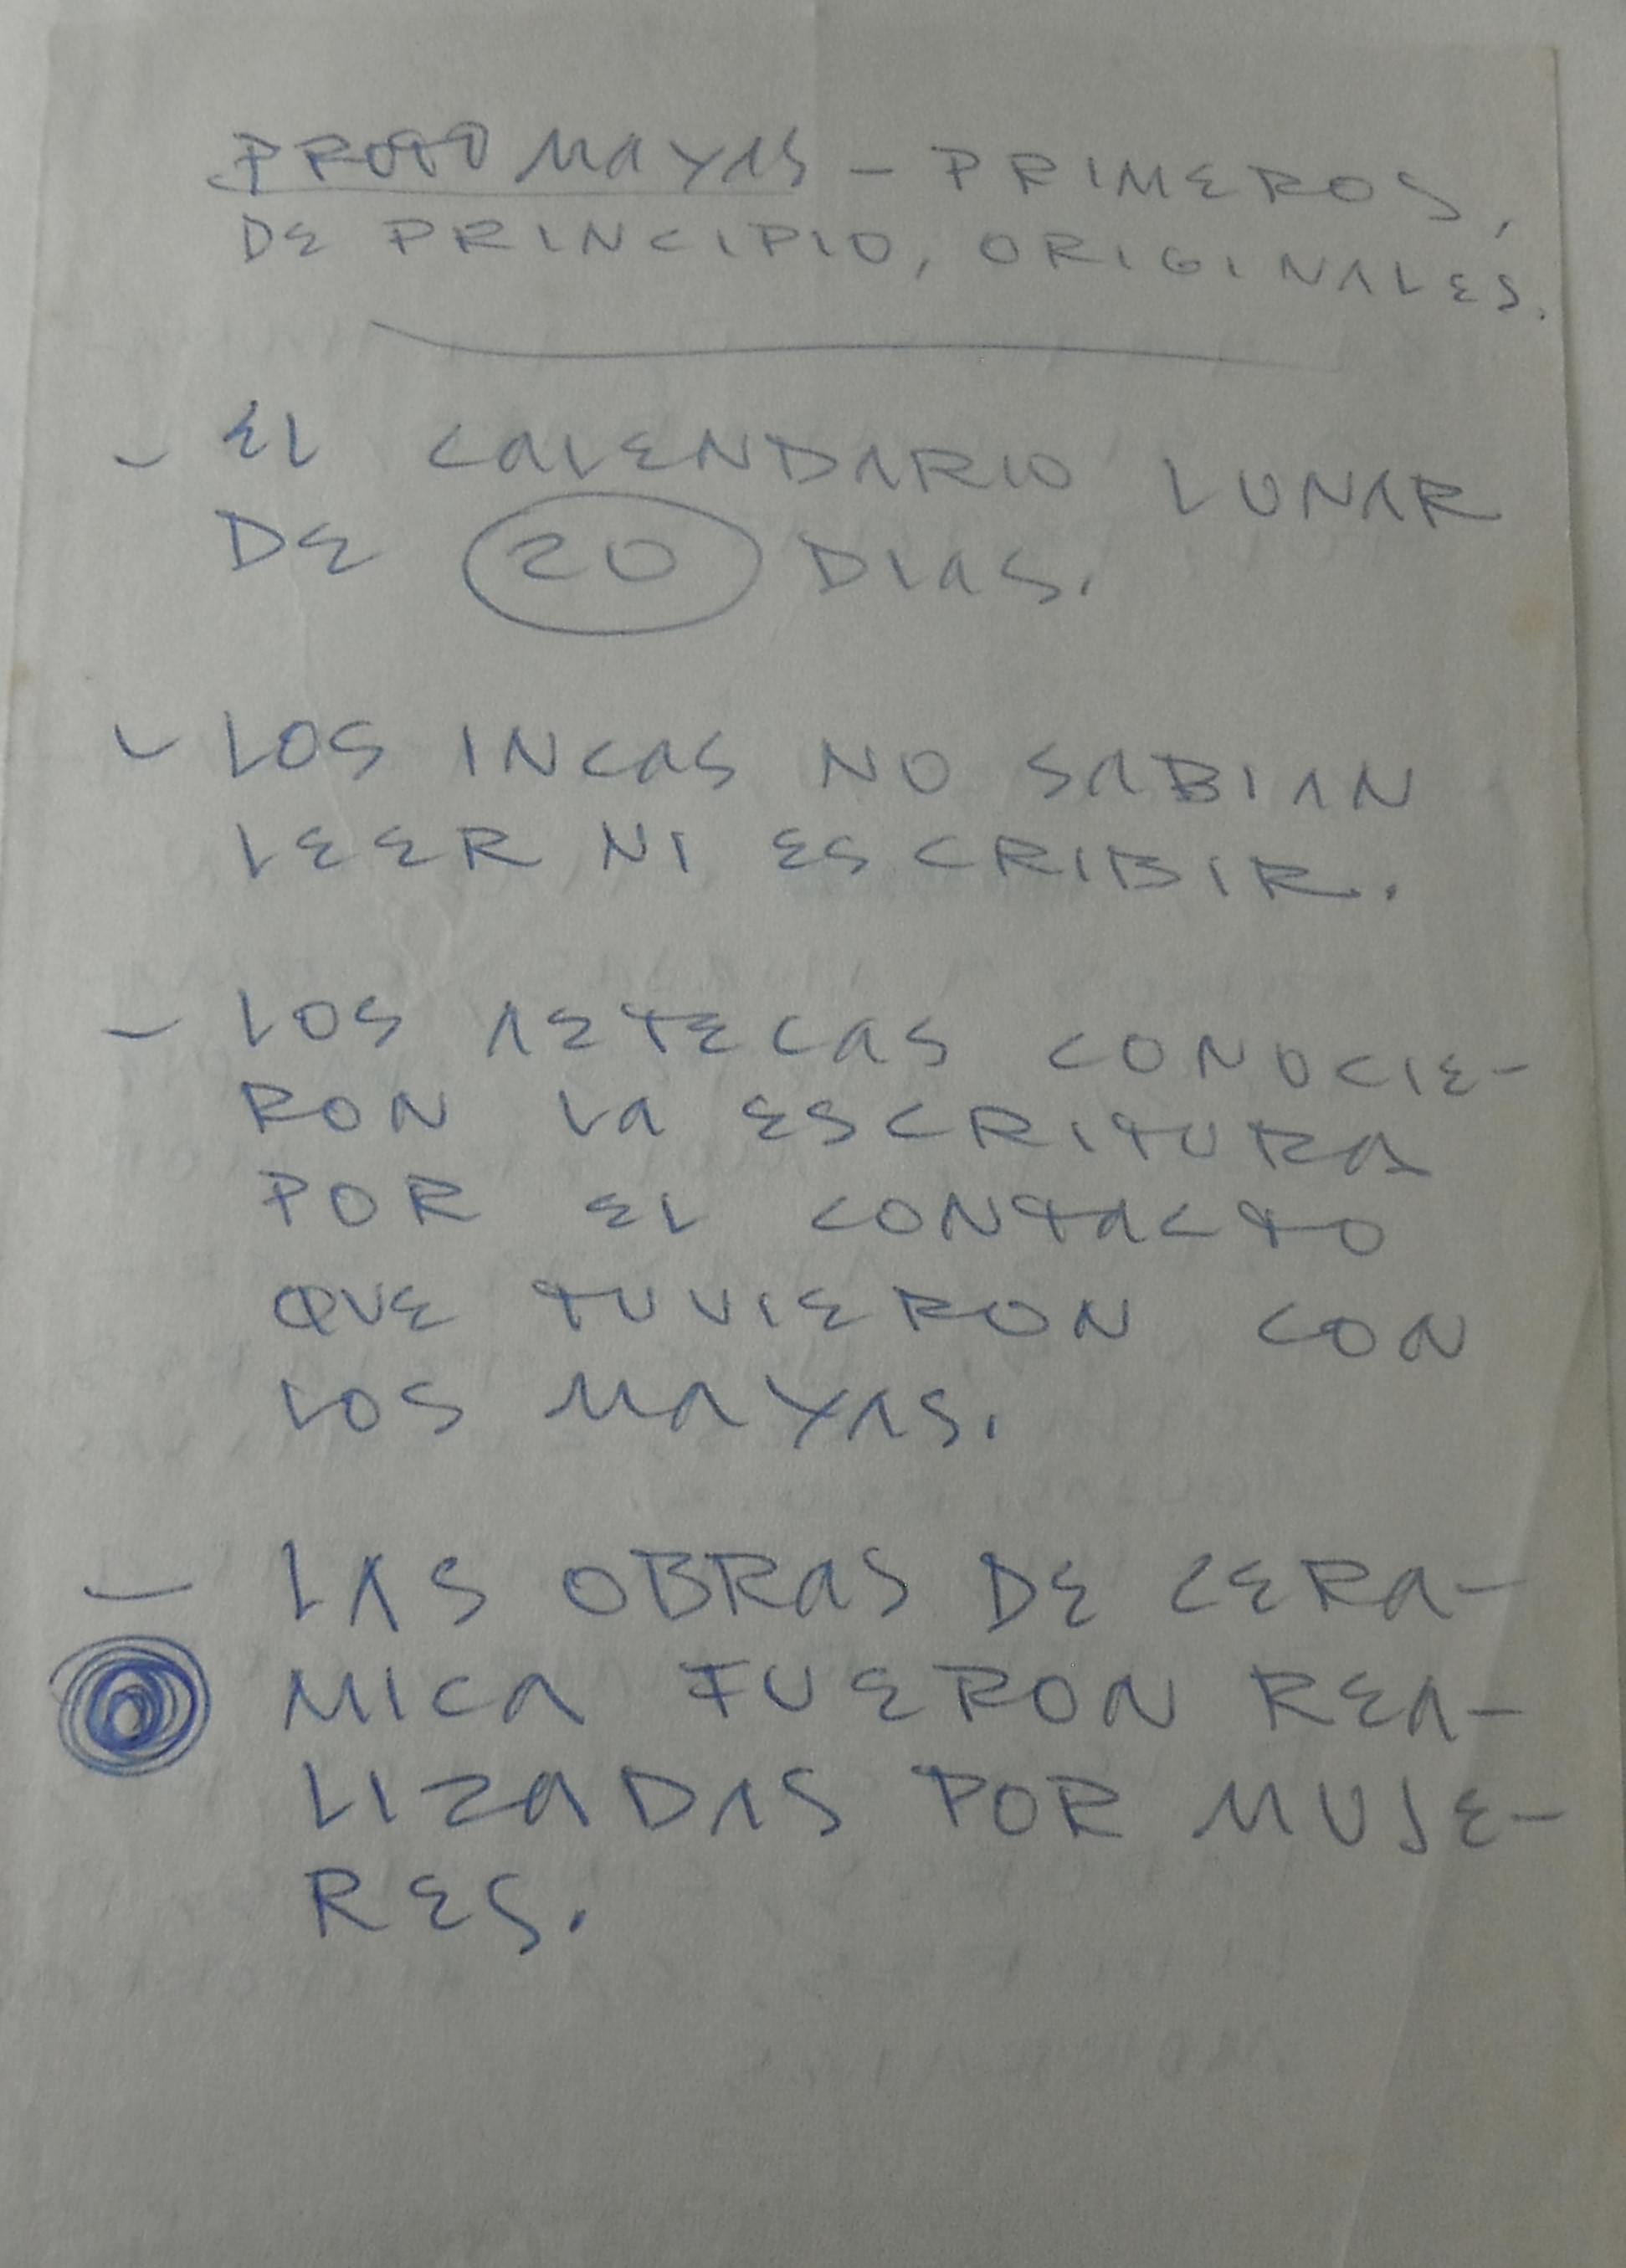 PROTO MAYAS - PRIMEROS,
DE PRINCIPIO, ORIGINALES.
- EL CALENDARIO LUNAR
DE 20 DIAS.
- LOS INCAS NO SABIAN
LEER NI ESCRIBIR.
- LOS AZTECAS CONOCIE-
RON LA ESCRITURA
POR EL CONTACTO
QUE TUVIERON CON
LOS MAYAS.
- LAS OBRAS DE CERA-
MICA FUERON REA-
LIZADAS POR MUJE-
RES.